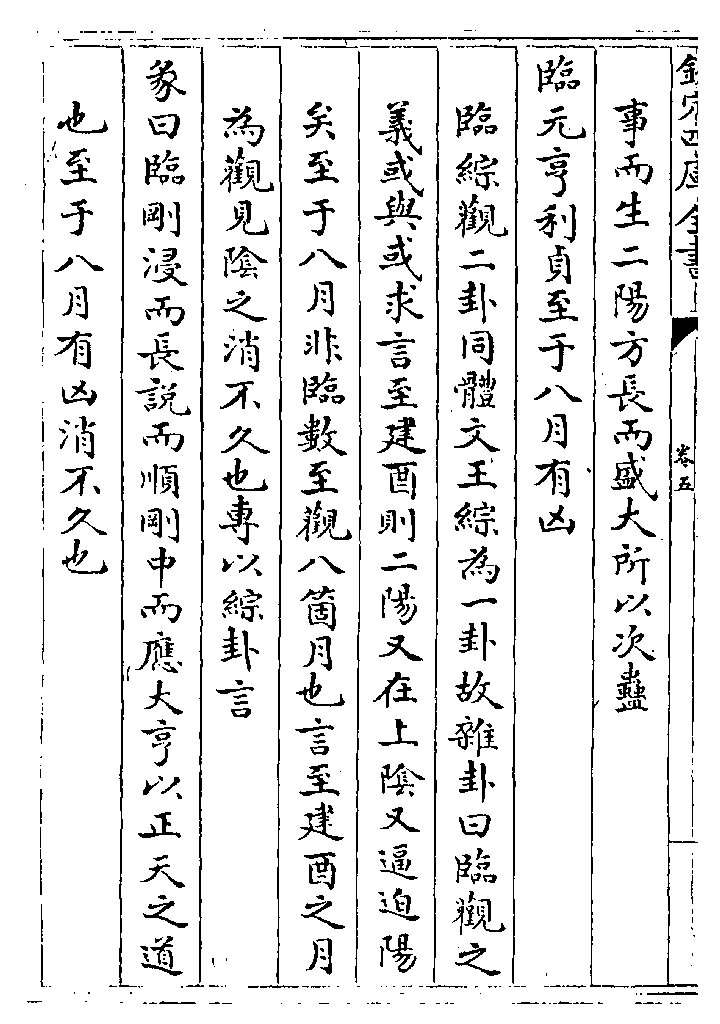 欽定四庫全書
卷五
事而生二陽方長而盛大所以次蠱
臨元亨利貞至于八月有凶
臨綜觀二卦同體文王綜為一卦故雜卦曰臨觀之
義或與或求言至建酉則二陽又在上陰又逼迫陽
矣至于八月非臨數至觀八箇月也言至建酉之月
為觀見陰之消不久也專以綜卦言
彖曰臨剛浸而長說而順剛中而應大亨以正天之道
也至于八月有凶消不久也